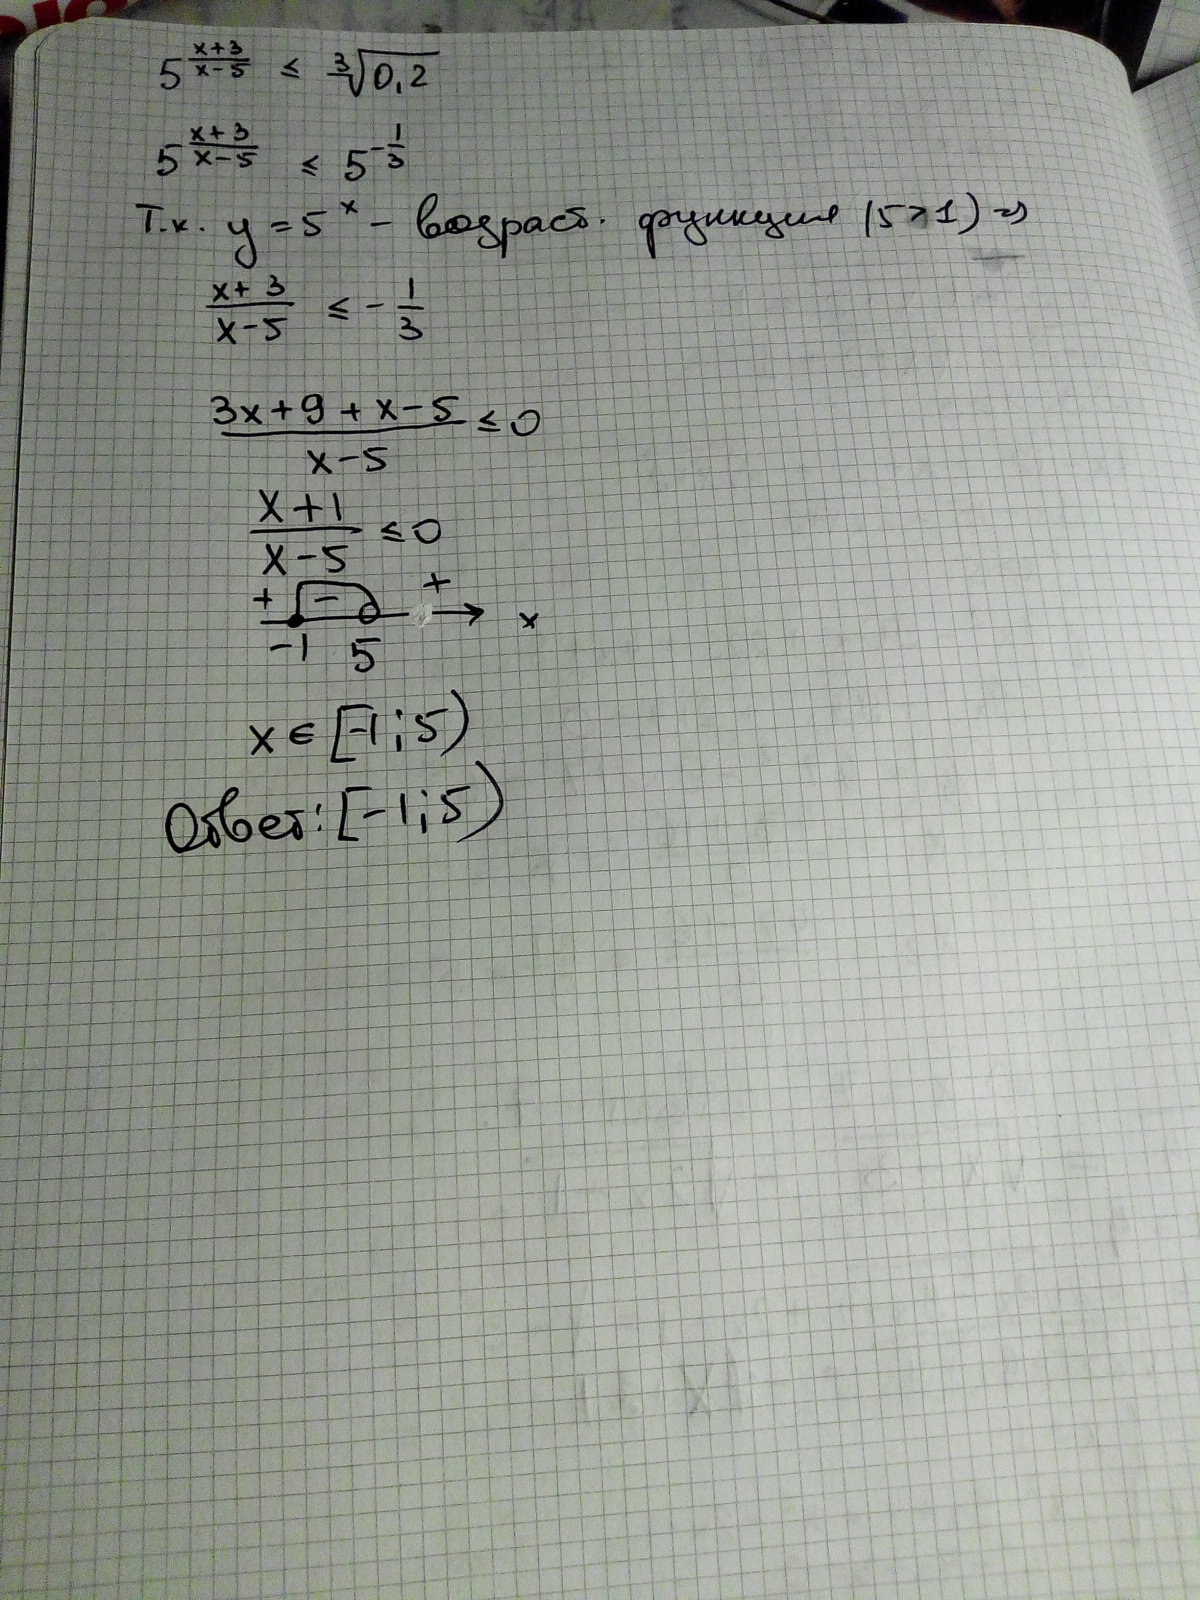 5^((x+3)/(x-5)) ≤ ∛0,2
5^((x+3)/(x-5)) ≤ 5^(-1/3)
Т.к. y = 5^x – возраст. функция (5>1) ⇒
(x+3)/(x-5) ≤ -1/3
(3x+9+x-5)/(x-5) ≤ 0
(x+1)/(x-5) ≤ 0
+ - +
-1 5 x
x ∈ [-1; 5)
Ответ: [-1; 5)